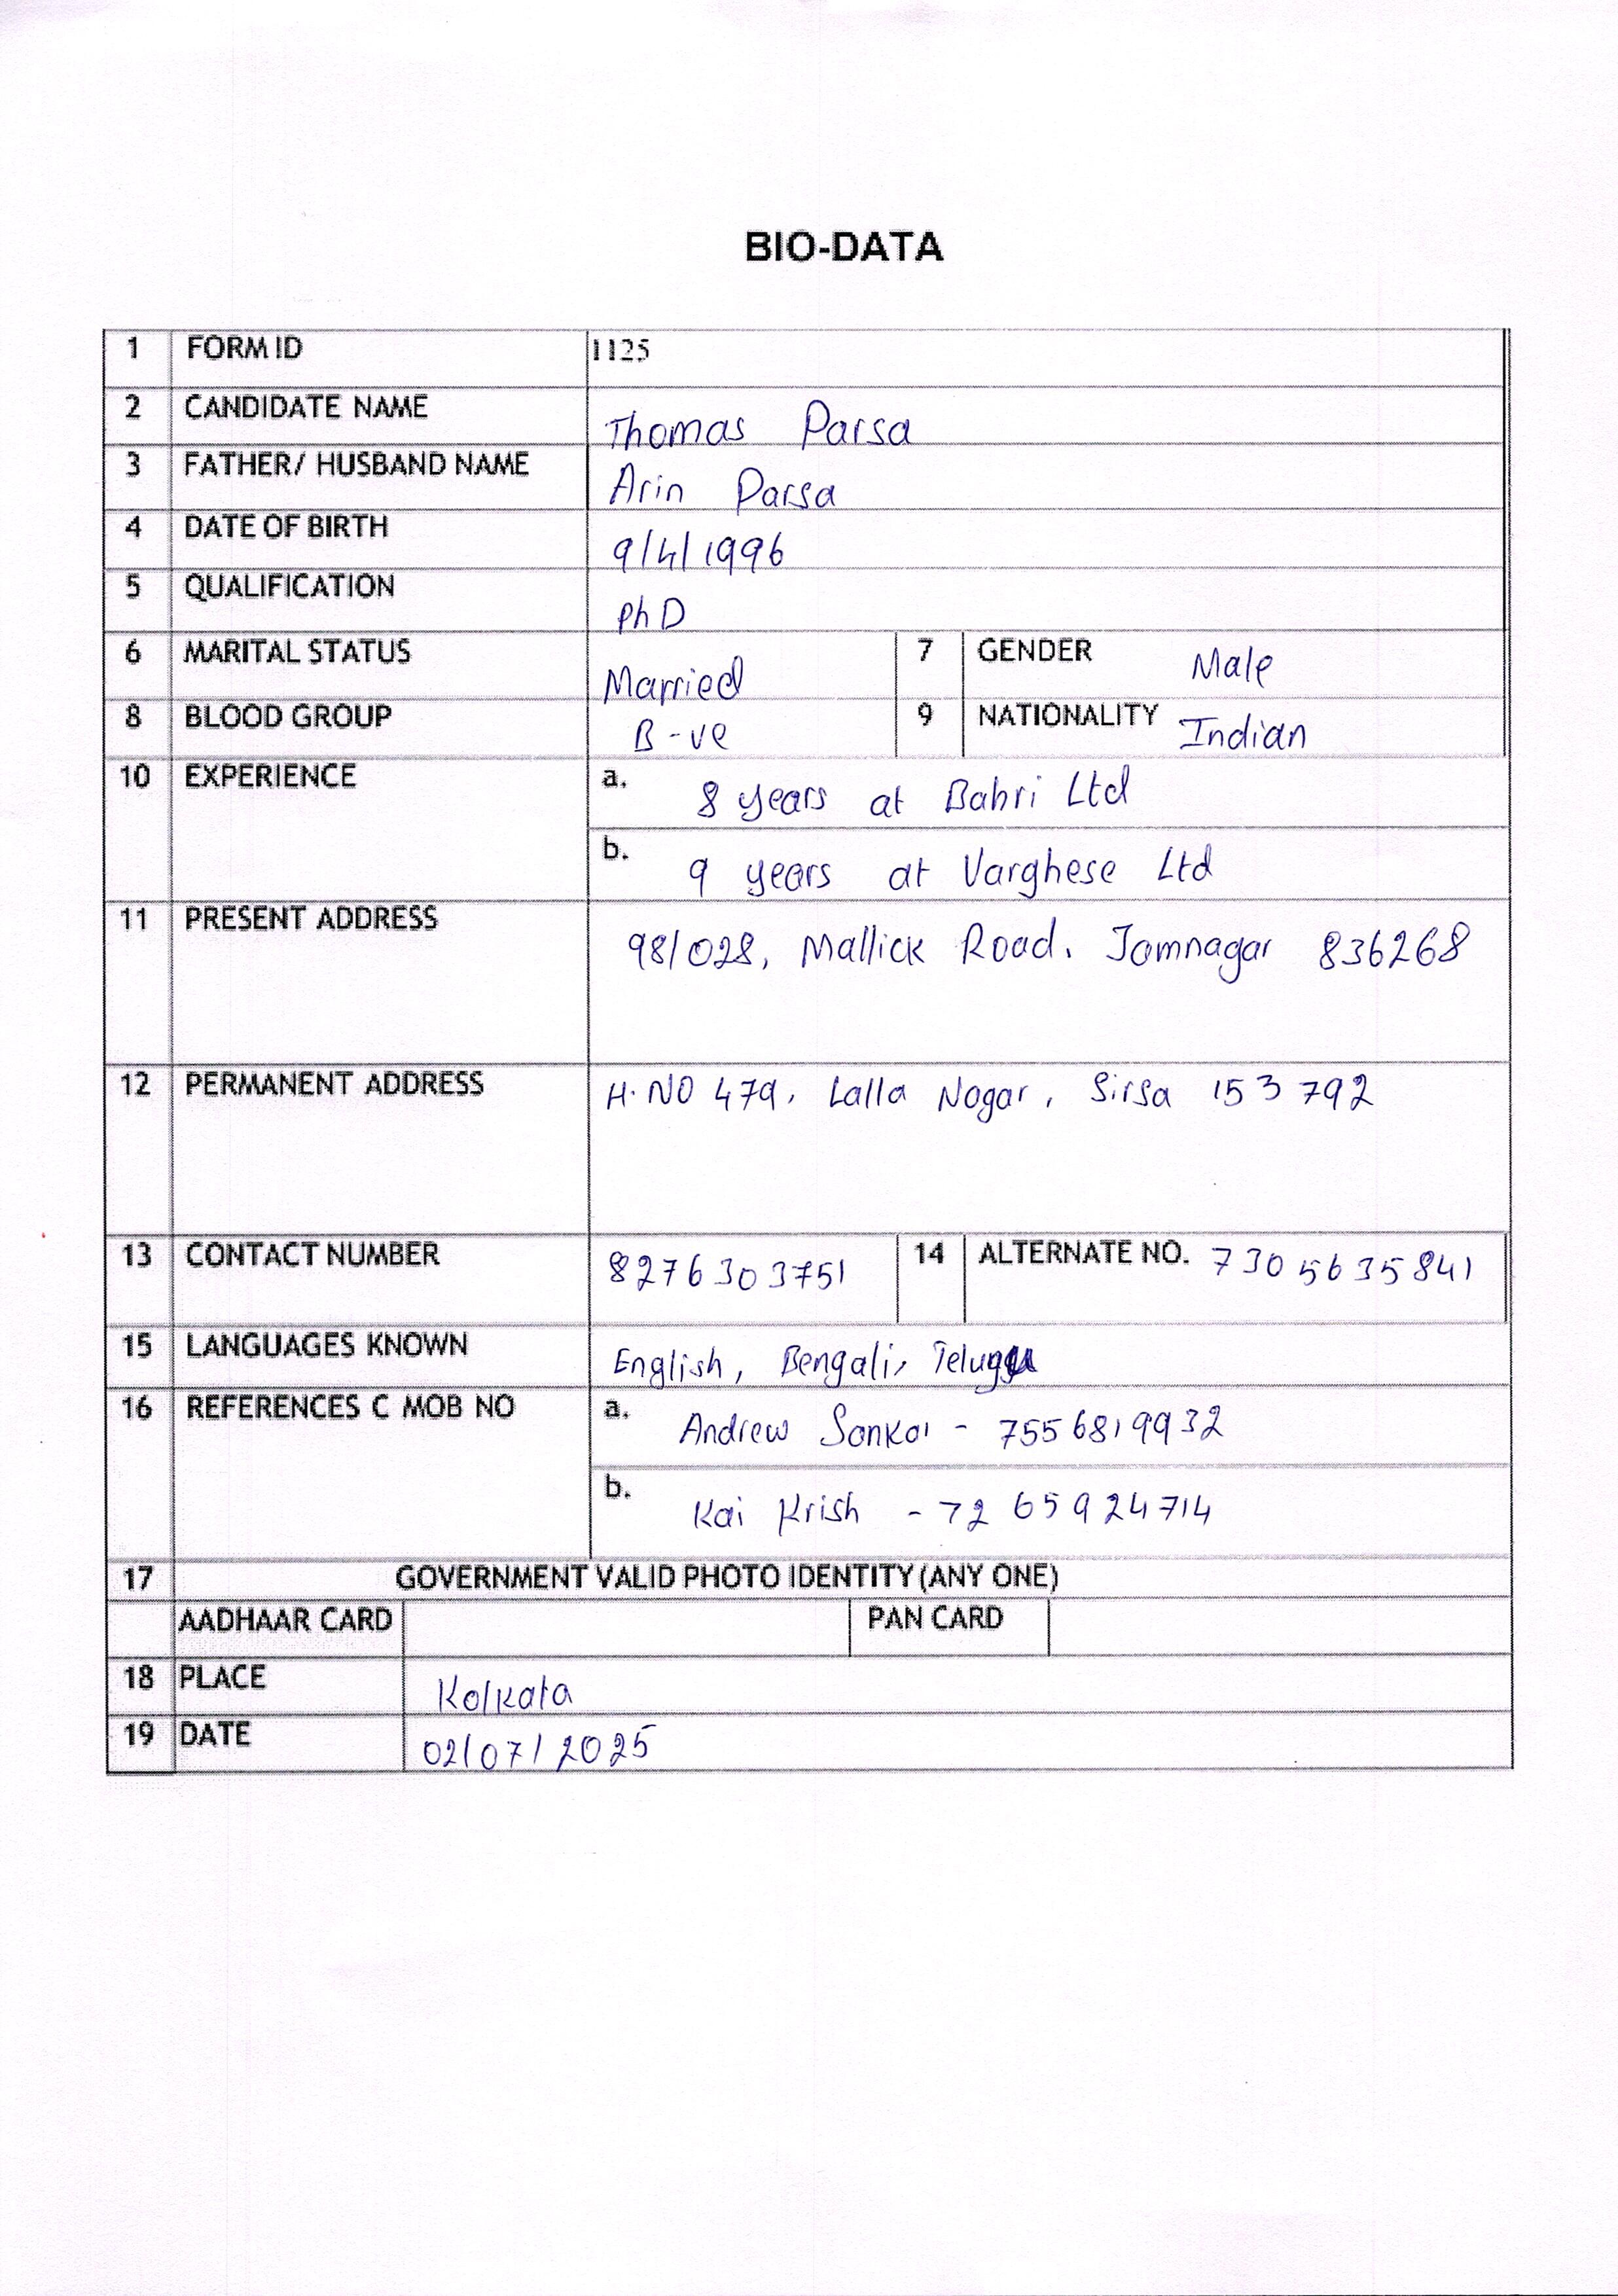 BIO-DATA
1 FORM ID 1125
2 CANDIDATE NAME Thomas Parsa
3 FATHER/ HUSBAND NAME Arin Parsa
4 DATE OF BIRTH 9/4/1996
5 QUALIFICATION PhD
6 MARITAL STATUS Married 7 GENDER Male
8 BLOOD GROUP B-ve 9 NATIONALITY Indian
10 EXPERIENCE a. 8 years at Bahri Ltd
b. 9 years at Varghese Ltd
11 PRESENT ADDRESS 98/028, Mallick Road. Jamnagar 836268
12 PERMANENT ADDRESS H.NO 479, Lalla Nagar, Sirsa 153792
13 CONTACT NUMBER 8276303751 14 ALTERNATE NO. 7305635841
15 LANGUAGES KNOWN English, Bengali, Telugu
16 REFERENCES C MOB NO a. Andrew Sankar - 7556819932
b. Kai Krish - 7265924714
17 GOVERNMENT VALID PHOTO IDENTITY (ANY ONE)
AADHAAR CARD PAN CARD
18 PLACE Kolkata
19 DATE 02/07/2025